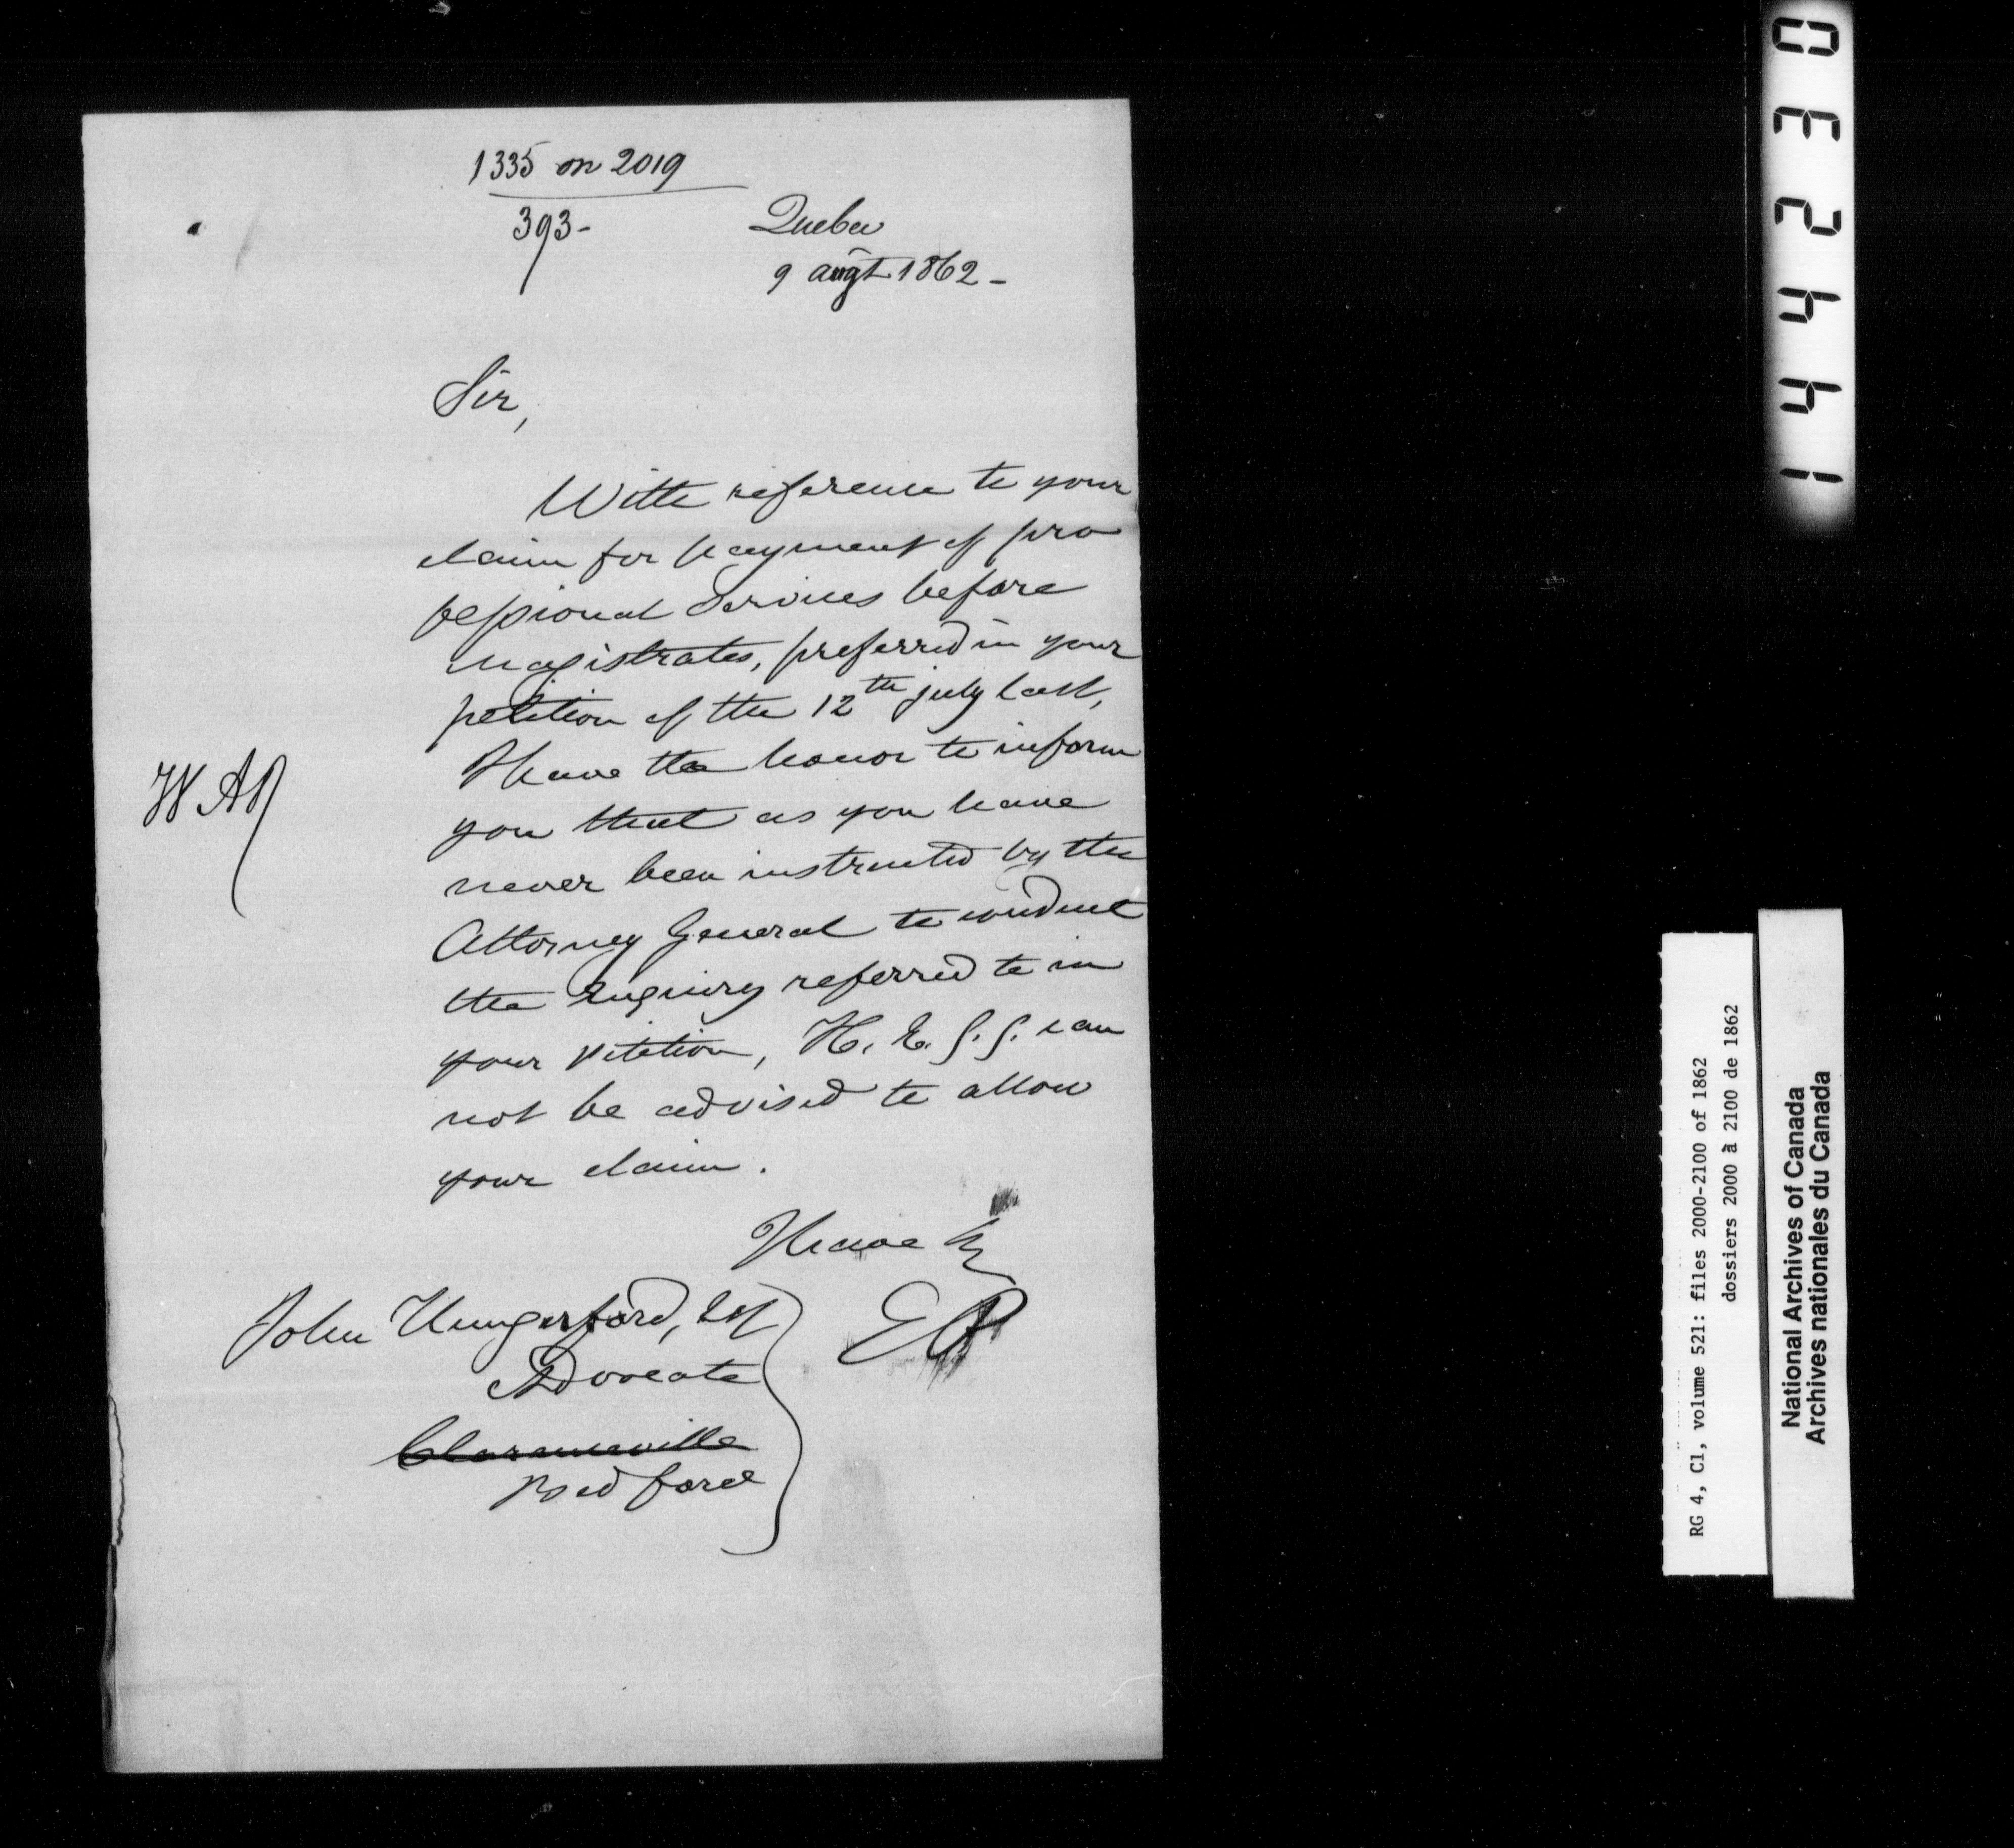 1335 on 2019
393-
Quebec
9 augt 1862-
Sir,
With reference to your
claim for payment of pro
fessional services before
magistrates, preferred in your
petition of the 12th july last,
I have the honor to inform
you that as you have
never been instructed by the
Attorney General to conduct
the Enquiry referred to in
your petition, H. E. G. G. can
not be advised to allow
your claim.
I have &c
John Hungerford, Esq
Advocate
Clarenceville
Bedford
WAR
032441
RG 4, C1, volume 521: files 2000-2100 of 1862
dossiers 2000 à 2100 de 1862
National Archives of Canada
Archives nationales du Canada